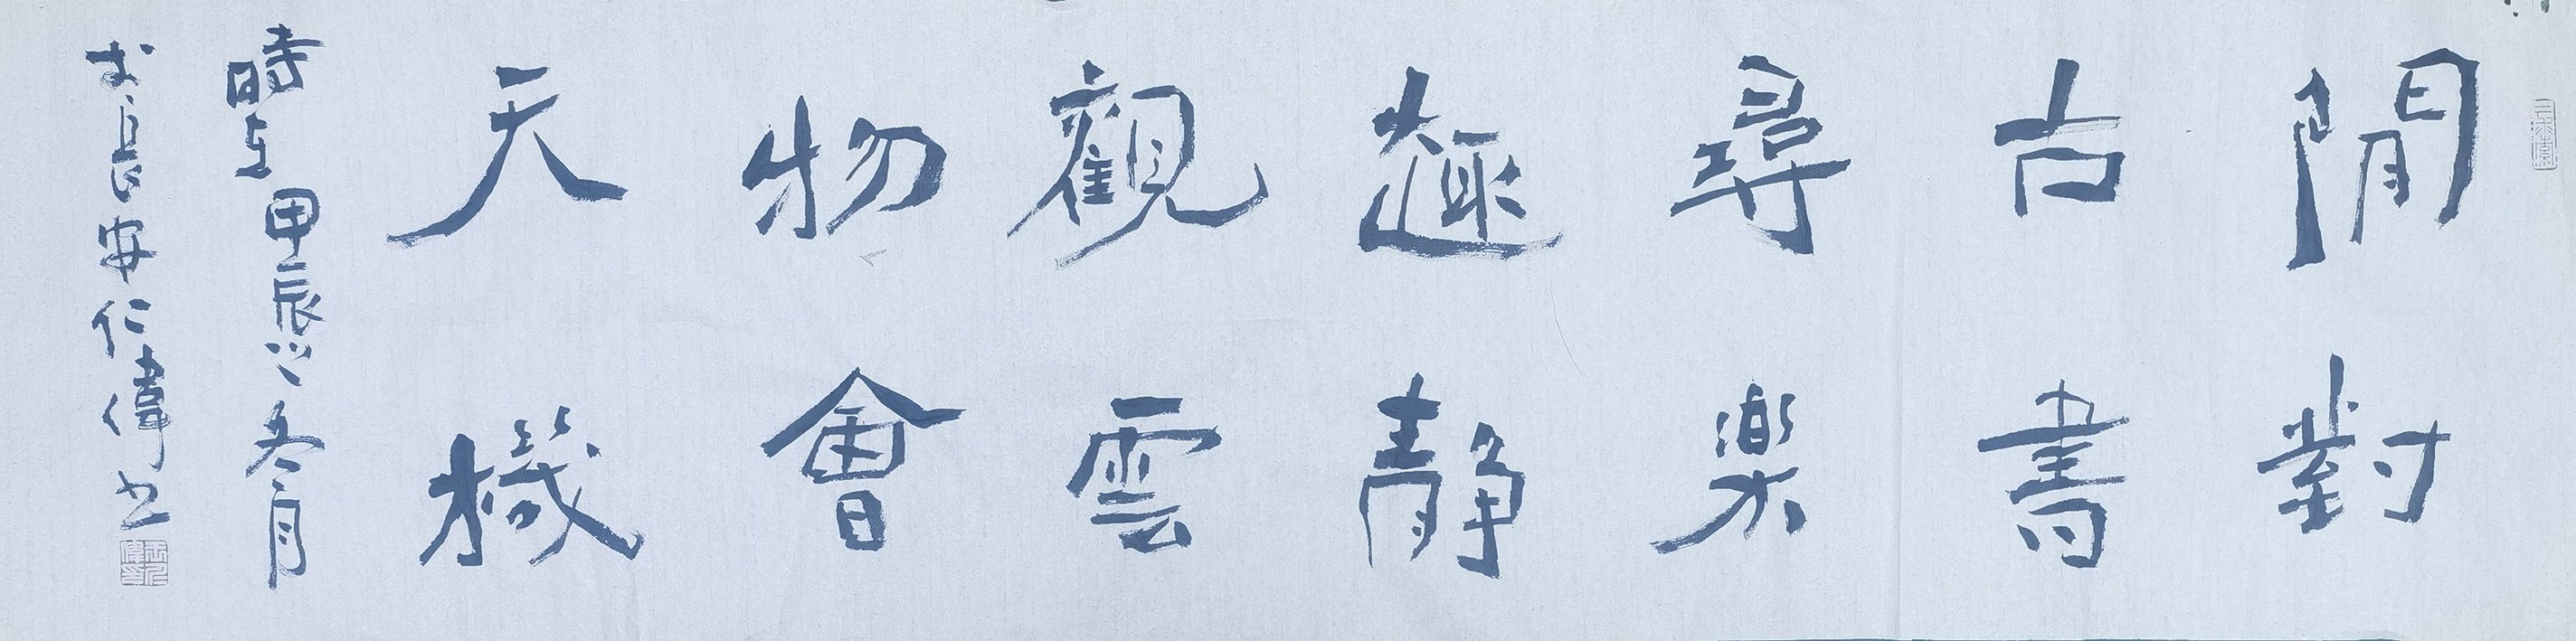 閒對
古書
尋樂
趣靜
觀雲
物會
天機
時在甲辰之冬月
於長安仁偉書